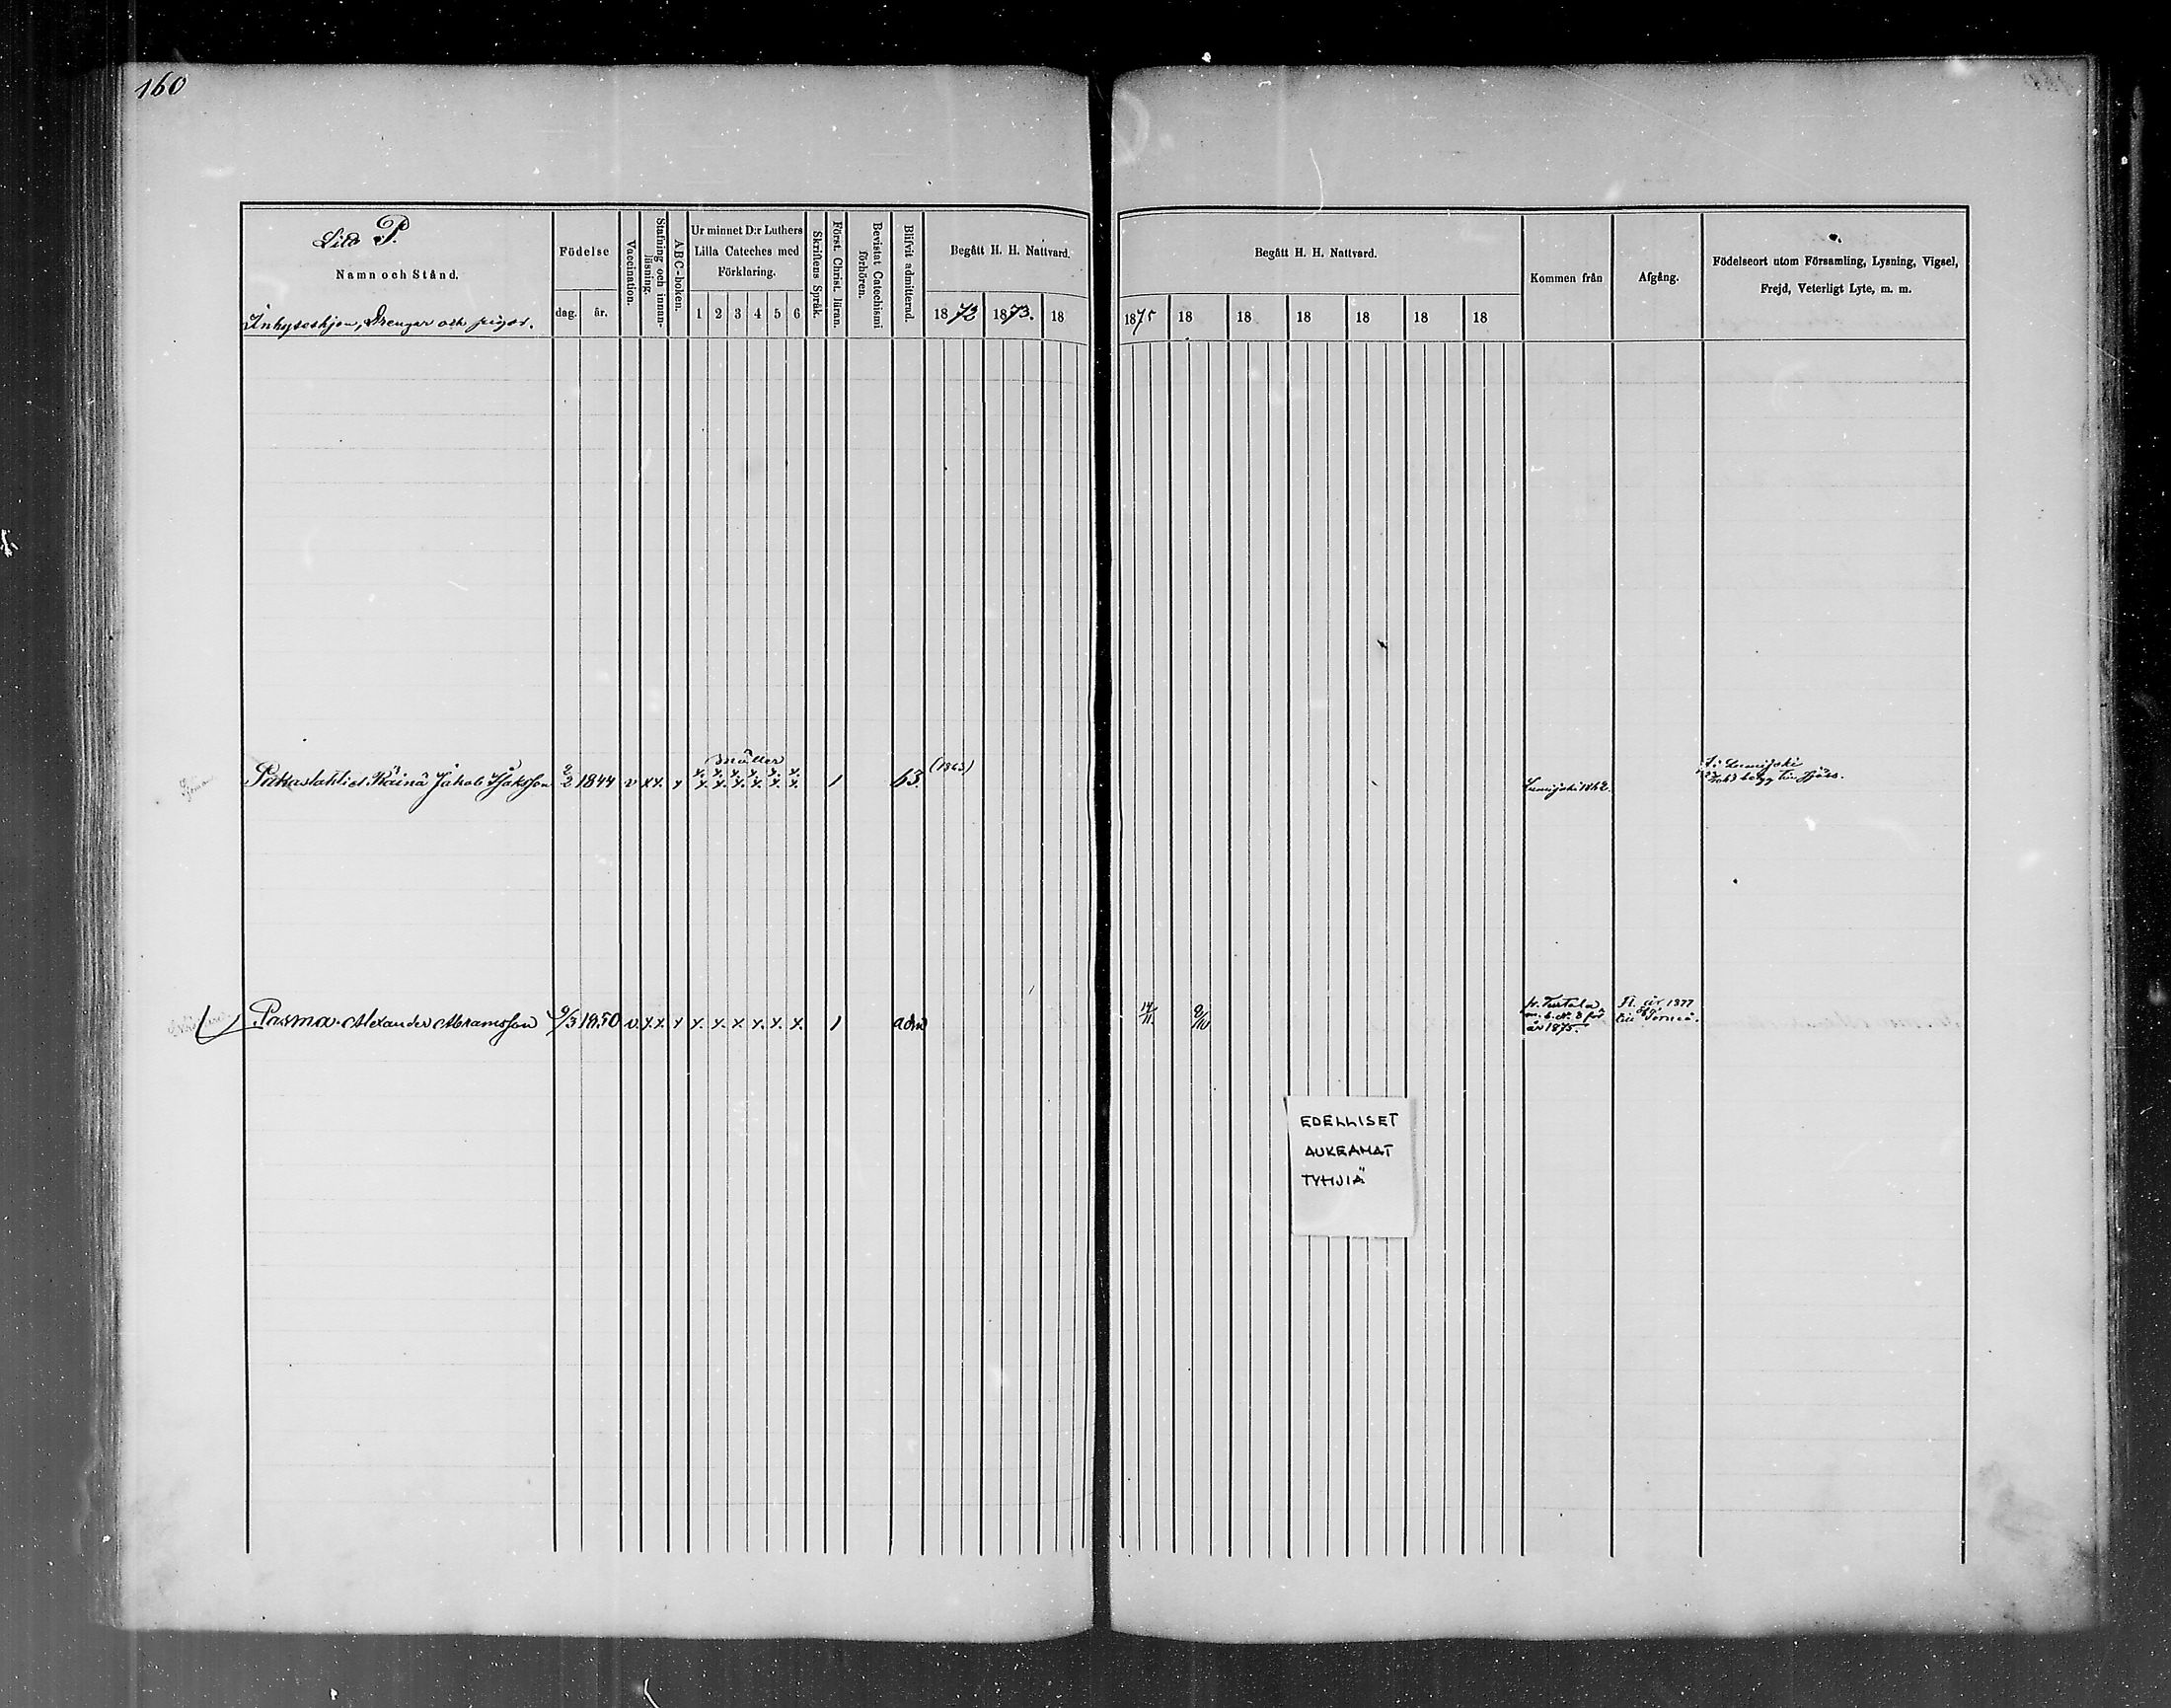 160
Litt P.
Namn och Stånd.
Inhyseshjon, Drengar och pigor.
Födelse
dag. år.
Vaccination.
Stafning och innan-
läsning.
ABC-boken.
Ur minnet D:r Luthers
Lilla Cateches med
Förklaring.
1 2 3 4 5 6
Skriftens Språk.
Först. Christ. läran.
Bevistat Catechismi
förhören.
Blifvit admitterad.
Begått H. H. Nattvard.
1872 1873. 18
Begått H. H. Nattvard.
1875 18 18 18 18 18 18
Kommen från
Afgång.
Födelseort utom Församling, Lysning, Vigsel,
Frejd, Veterligt Lyte, m. m.
Jakob 2/2 1844 v x x. x x. x. x. x. x. x. 1 63. (1863)
Lumijoki 1862.
Lumijoki
Pasma Alexander Abramsson 9/3 1850 v. x x. x x. x. x. x. x. x. 1 adm 14/11. 8/10
fr. Turtola
m. b. N. 8 för
år 1875.
Fl. år 1877
till Torneå.
EDELLISET
AUKEAMAT
TYHJIÄ